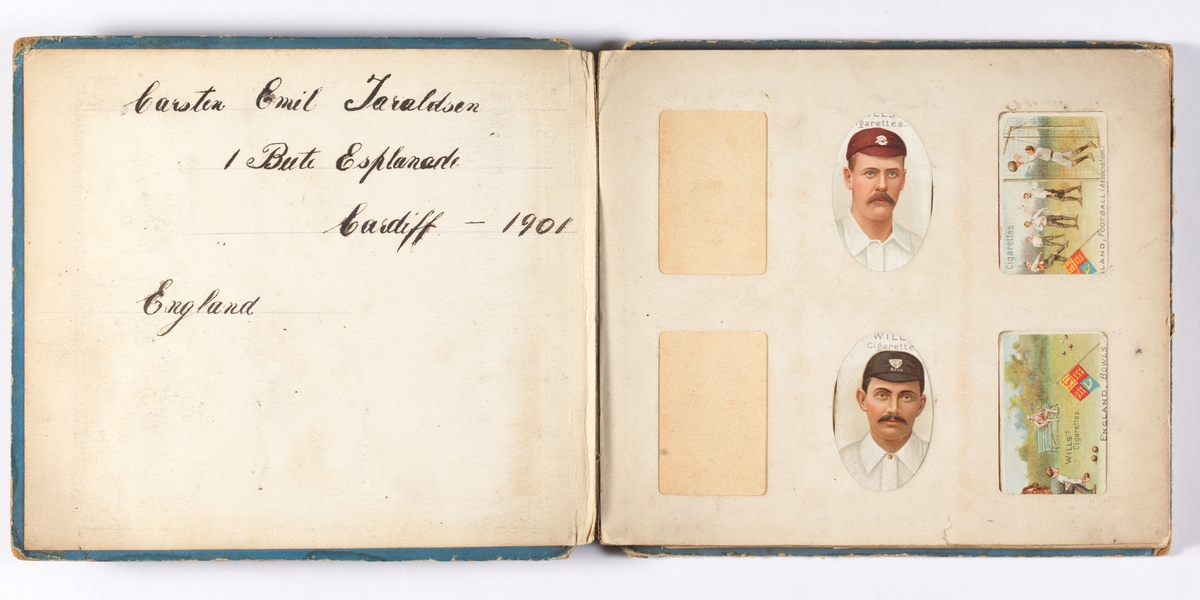 Carsten Emil Taraldsen
1 Bute Esplanade
Cardiff — 1901
England
WILLS'
garettes.
Cigarettes
LAND, FOOTBALL (ASSOCIATION)
WILL
Cigarette
WILLS'S
Cigarettes.
ENGLAND, BOWLS.